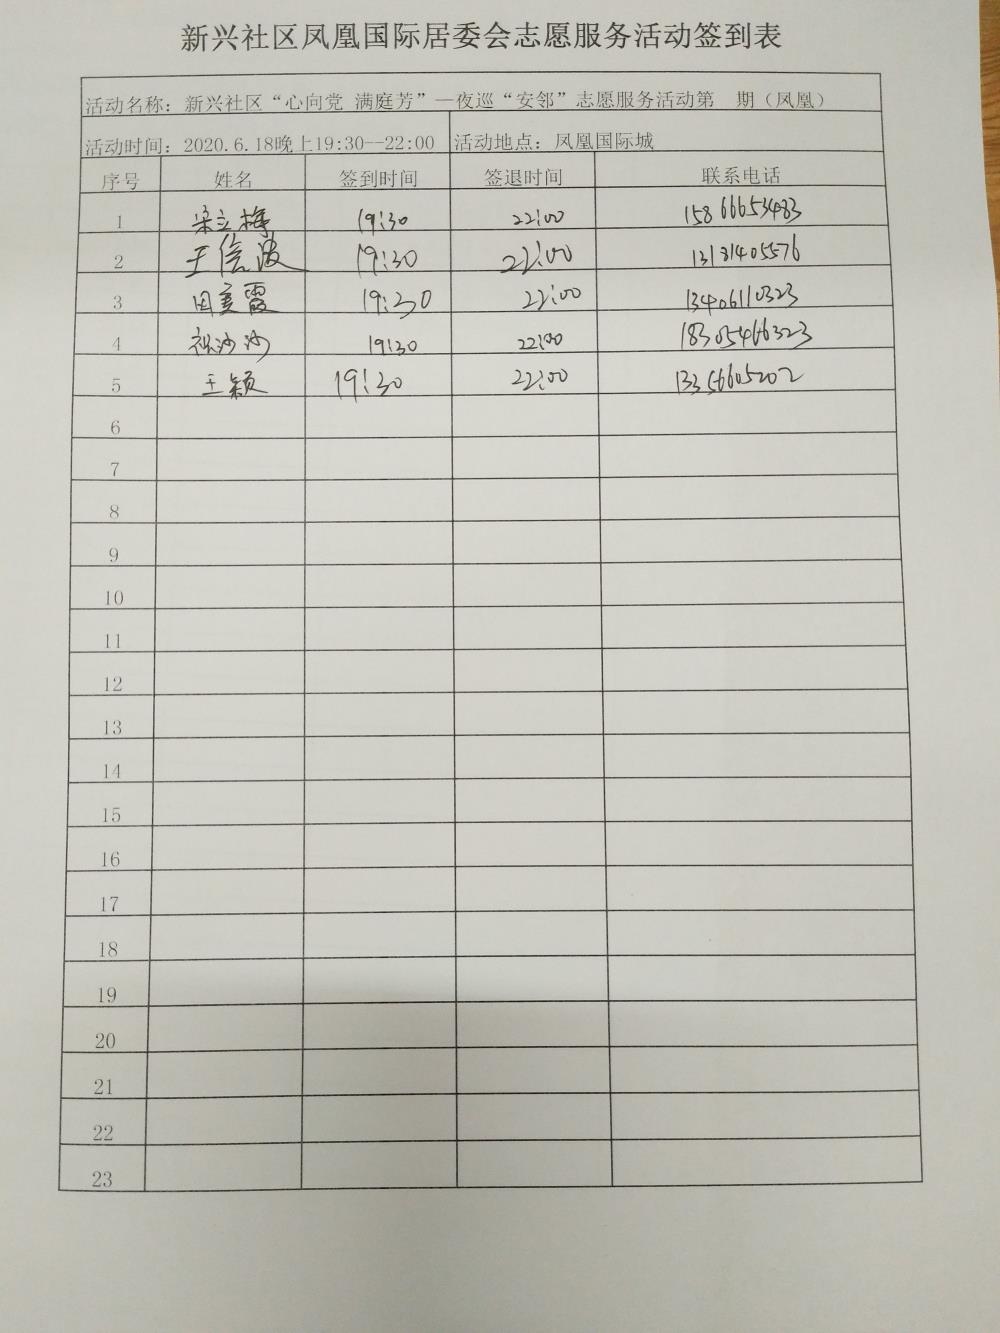 新兴社区凤凰国际居委会志愿服务活动签到表
活动名称：新兴社区“心向党 满庭芳”—夜巡“安邻”志愿服务活动第 期（凤凰）
活动时间：2020.6.18晚上19:30--22:00 活动地点：凤凰国际城
序号 姓名 签到时间 签退时间 联系电话
1 梁立梅 19:30 22:00 15866653483
2 王信波 19:30 22:00 13181405576
3 田爱霞 19:30 22:00 13406110323
4 祝沙沙 19:30 22:00 18305466323
5 王颖 19:30 22:00 13356605202
6
7
8
9
10
11
12
13
14
15
16
17
18
19
20
21
22
23